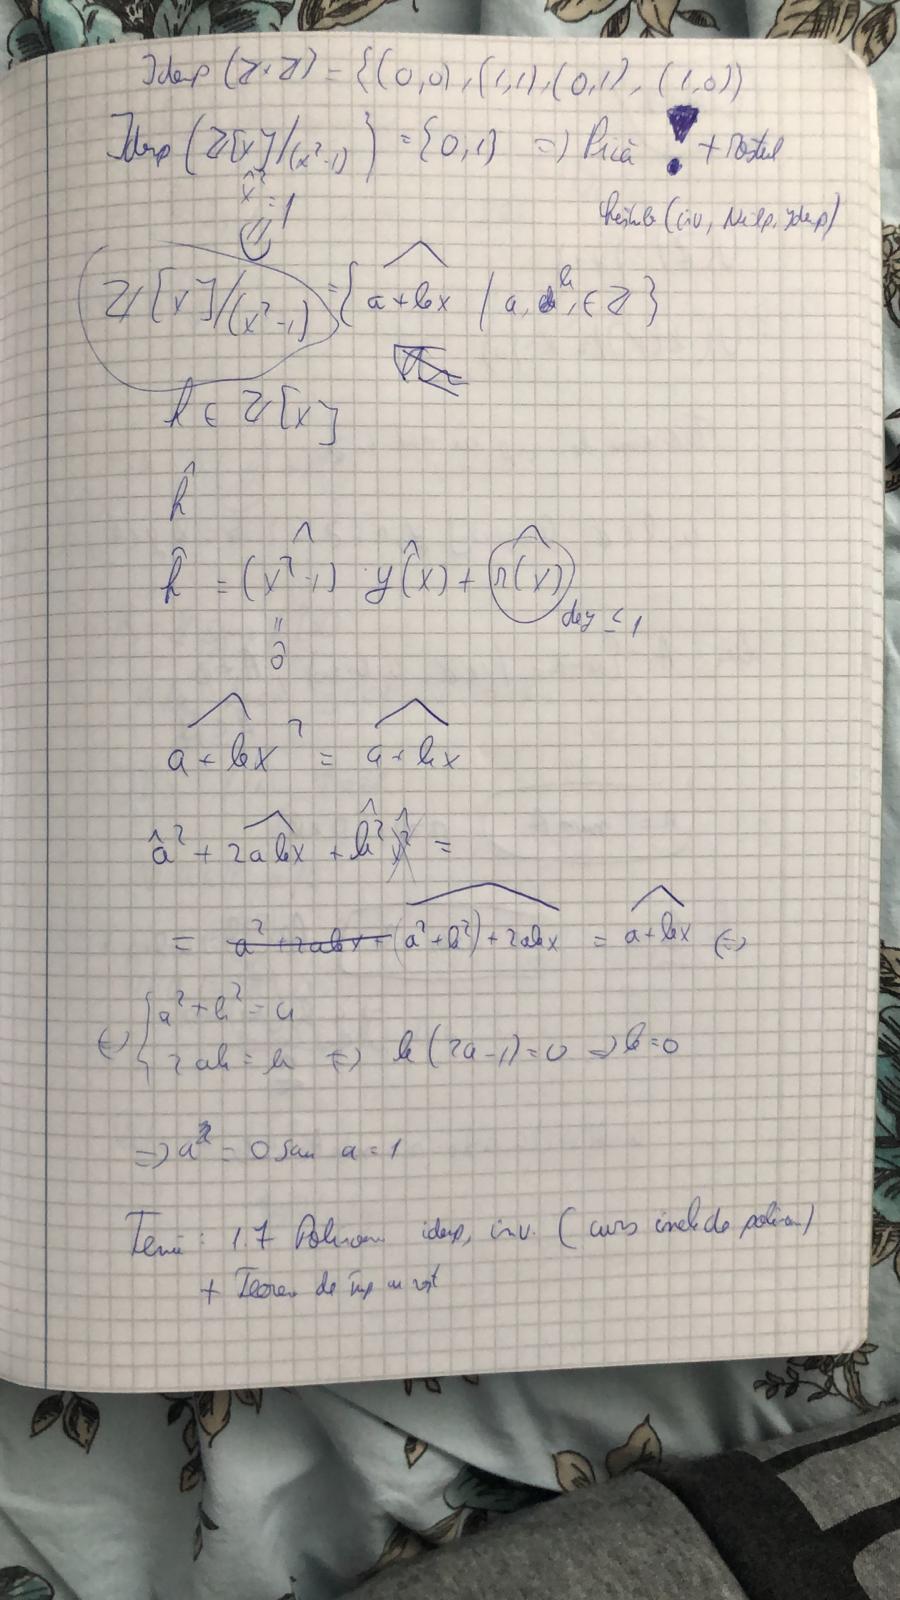 Idemp (Z×Z) = {(0,0), (1,1), (0,1), (1,0)}
Idemp (Z[x]/(x²-1)) = {0,1} => Pică ! + Restul
x̂² = 1
(inv, Nilp, Idemp)
Z[x]/(x²-1) = {a+bx | a, b, ∈ Z}
h ∈ Z[x]
ĥ
ĥ = (x²-1) ŷ(x) + r(x)
deg ≤ 1
"
0̂
a+bx ² = a+bx
â² + 2abx + b̂² x̂² =
= a² + 2abx + (a²+b²) + 2abx = a+bx (=)
(=) { a² + b² = a
2ab = b (=) b(2a-1) = 0 => b=0
=> a = 0 sau a = 1
Temă: 1.7 Polinoam idemp, inv. (curs inele de polinoam)
+ Teorem de împ cu rest